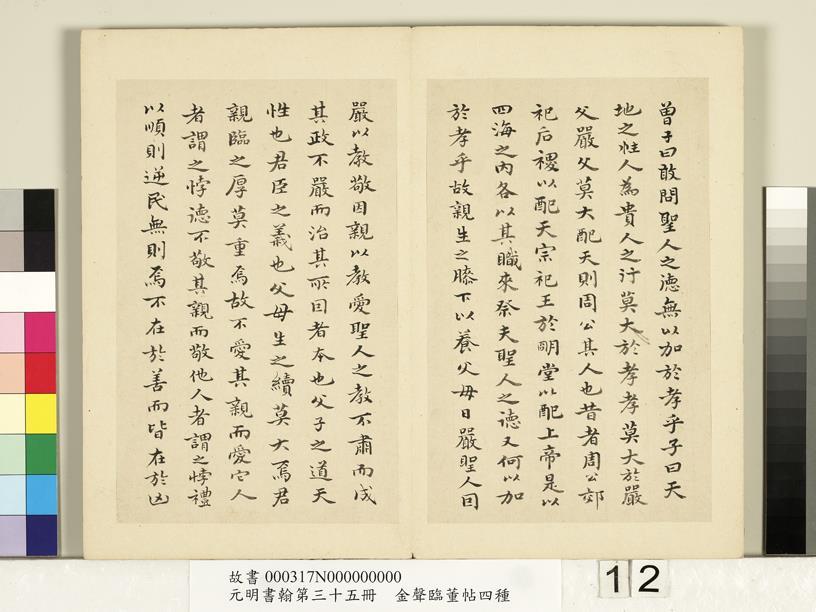 曾子曰敢問聖人之德無以加於孝乎子曰天
地之性人為貴人之行莫大於孝孝莫大於嚴
父嚴父莫大配天則周公其人也昔者周公郊
祀后稷以配天宗祀王於明堂以配上帝是以
四海之內各以其職來祭夫聖人之德又何以加
於孝乎故親生之膝下以養父母日嚴聖人因
嚴以教敬因親以教愛聖人之教不肅而成
其政不嚴而治其所因者本也父子之道天
性也君臣之義也父母生之續莫大焉君
親臨之厚莫重焉故不愛其親而愛它人
者謂之悖德不敬其親而敬他人者謂之悖禮
以順則逆民無則焉不在於善而皆在於凶
故書 000317N000000000
元明書翰第三十五冊 金聲臨董帖四種
12